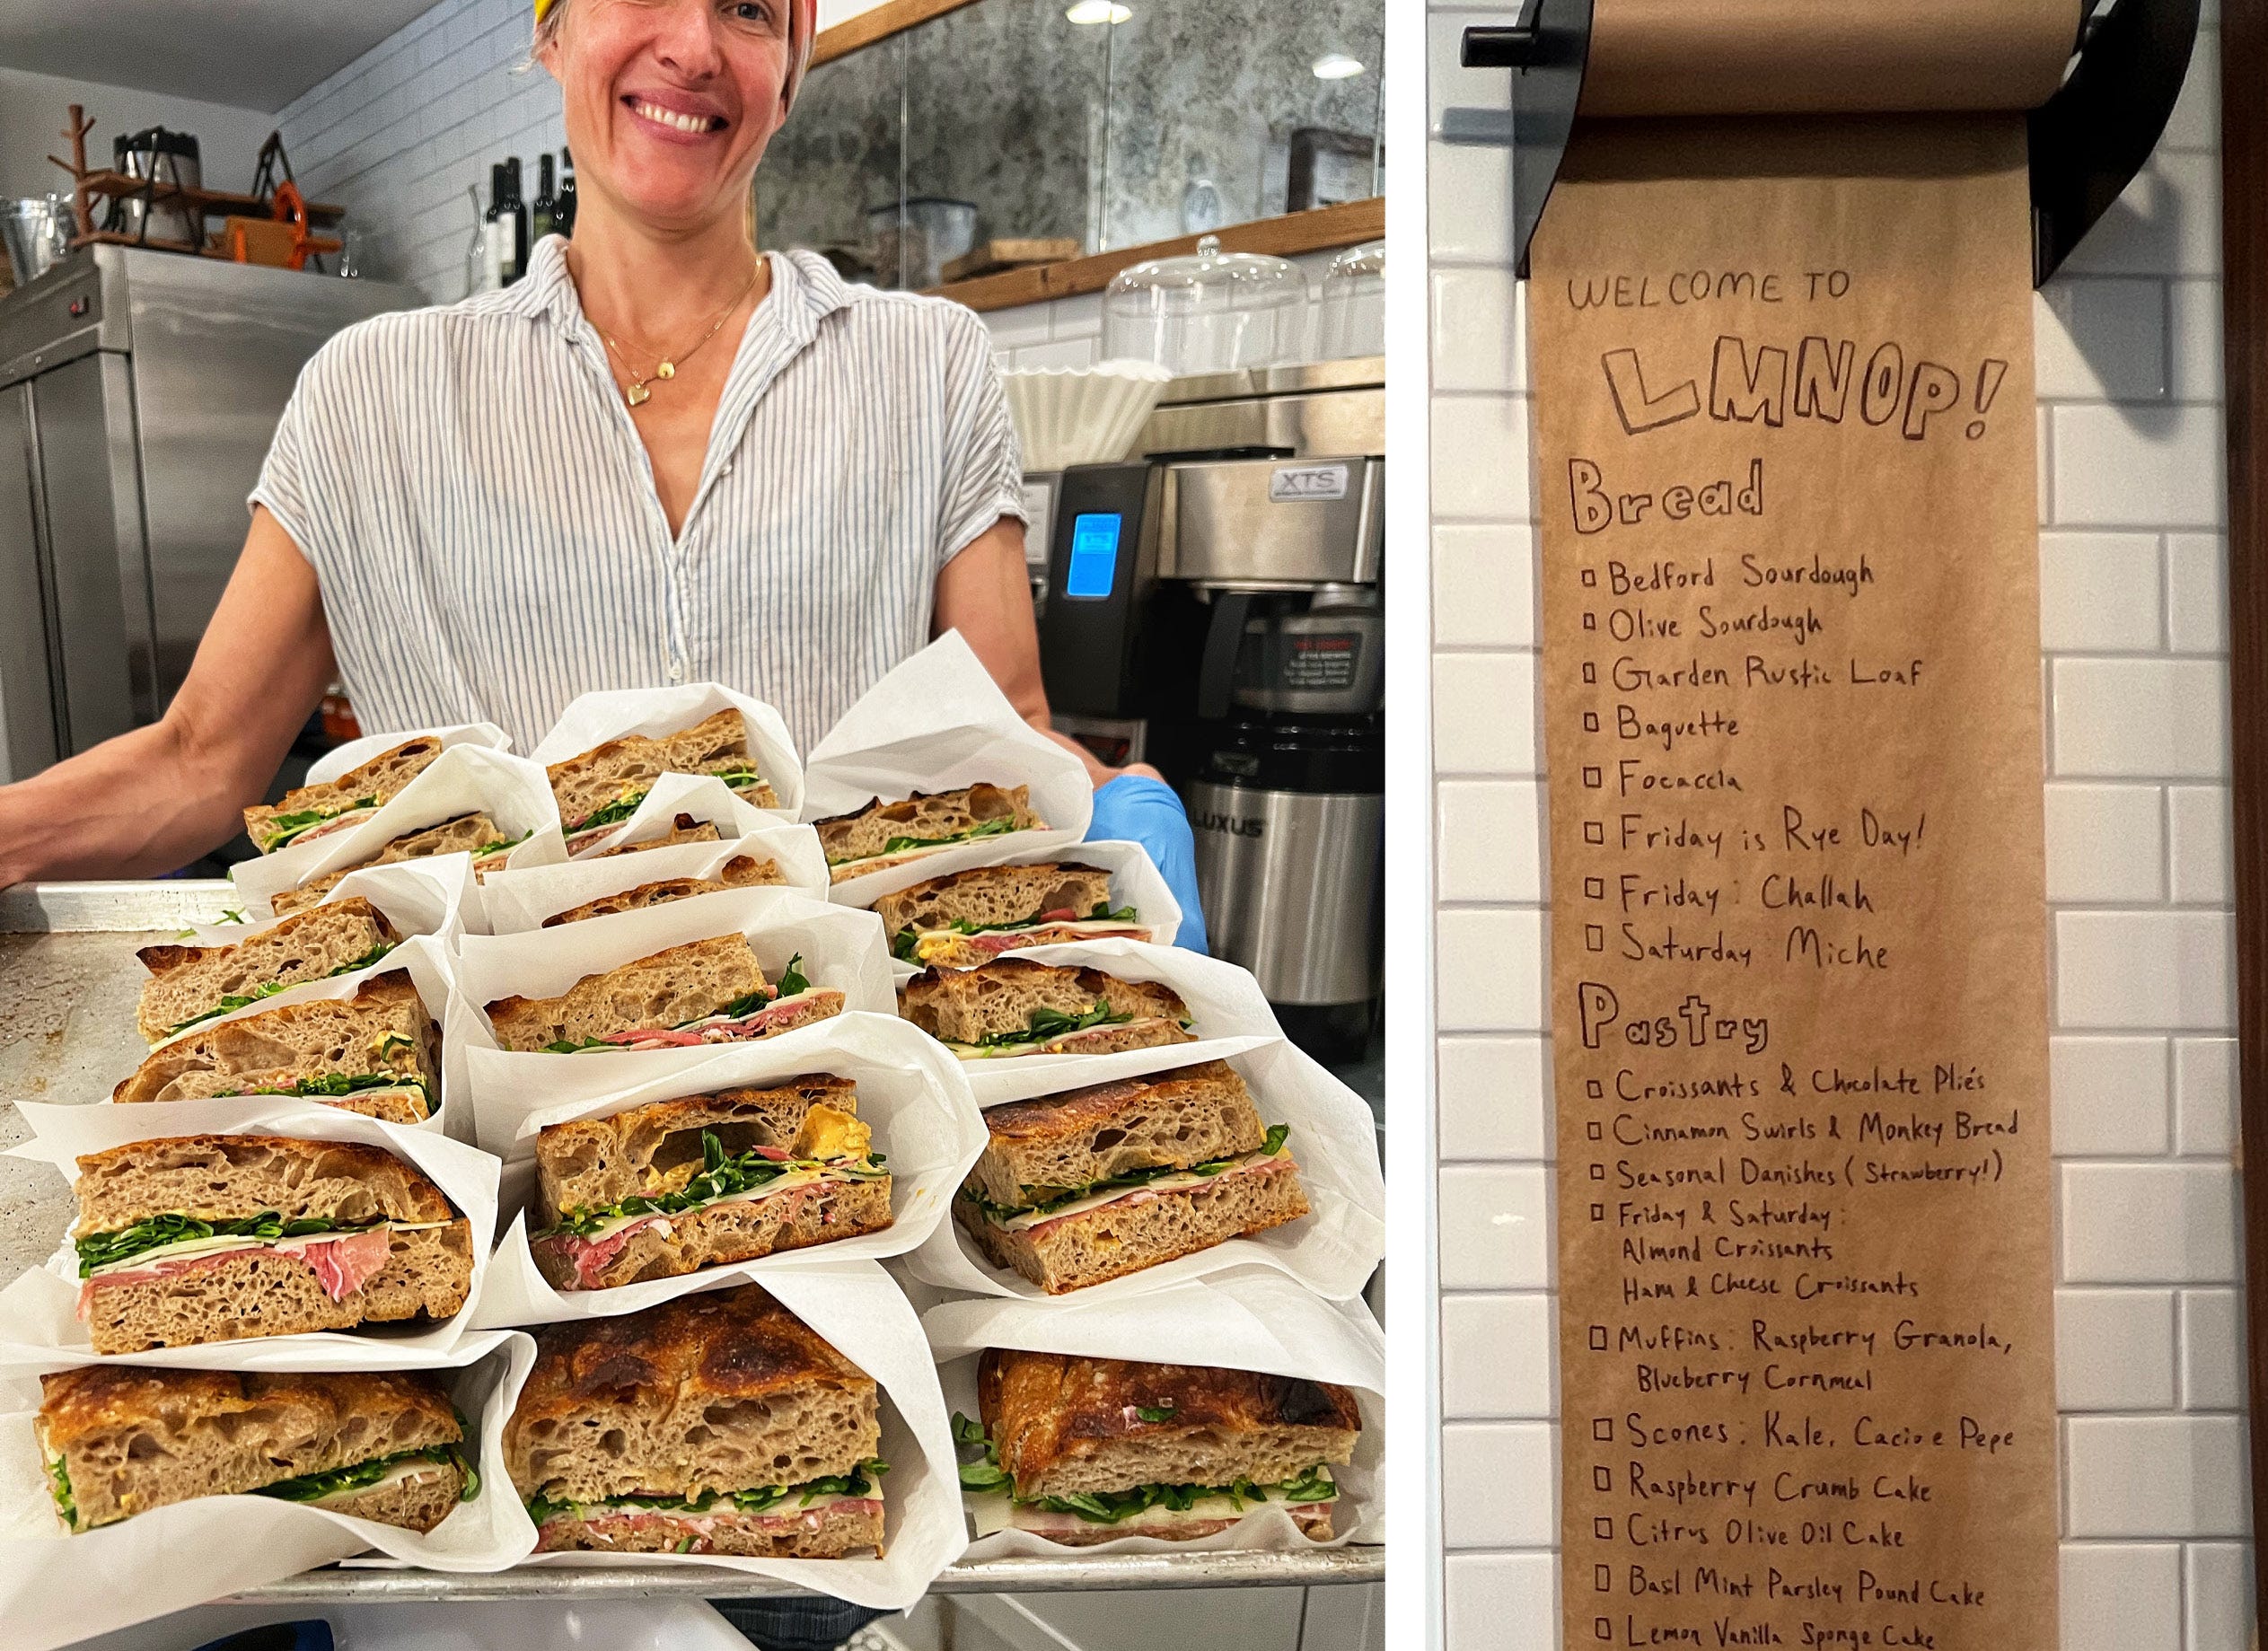 XTS
LUXUS
WELCOME TO
LMNOP!
Bread
Bedford Sourdough
Olive Sourdough
Garden Rustic Loaf
Baguette
Focaccia
Friday is Rye Day!
Friday: Challah
Saturday: Miche
Pastry
Croissants & Chocolate Pliés
Cinnamon Swirls & Monkey Bread
Seasonal Danishes (Strawberry!)
Friday & Saturday:
Almond Croissants
Ham & Cheese Croissants
Muffins: Raspberry Granola,
Blueberry Cornmeal
Scones: Kale, Cacio e Pepe
Raspberry Crumb Cake
Citrus Olive Oil Cake
Basil Mint Parsley Pound Cake
Lemon Vanilla Sponge Cake